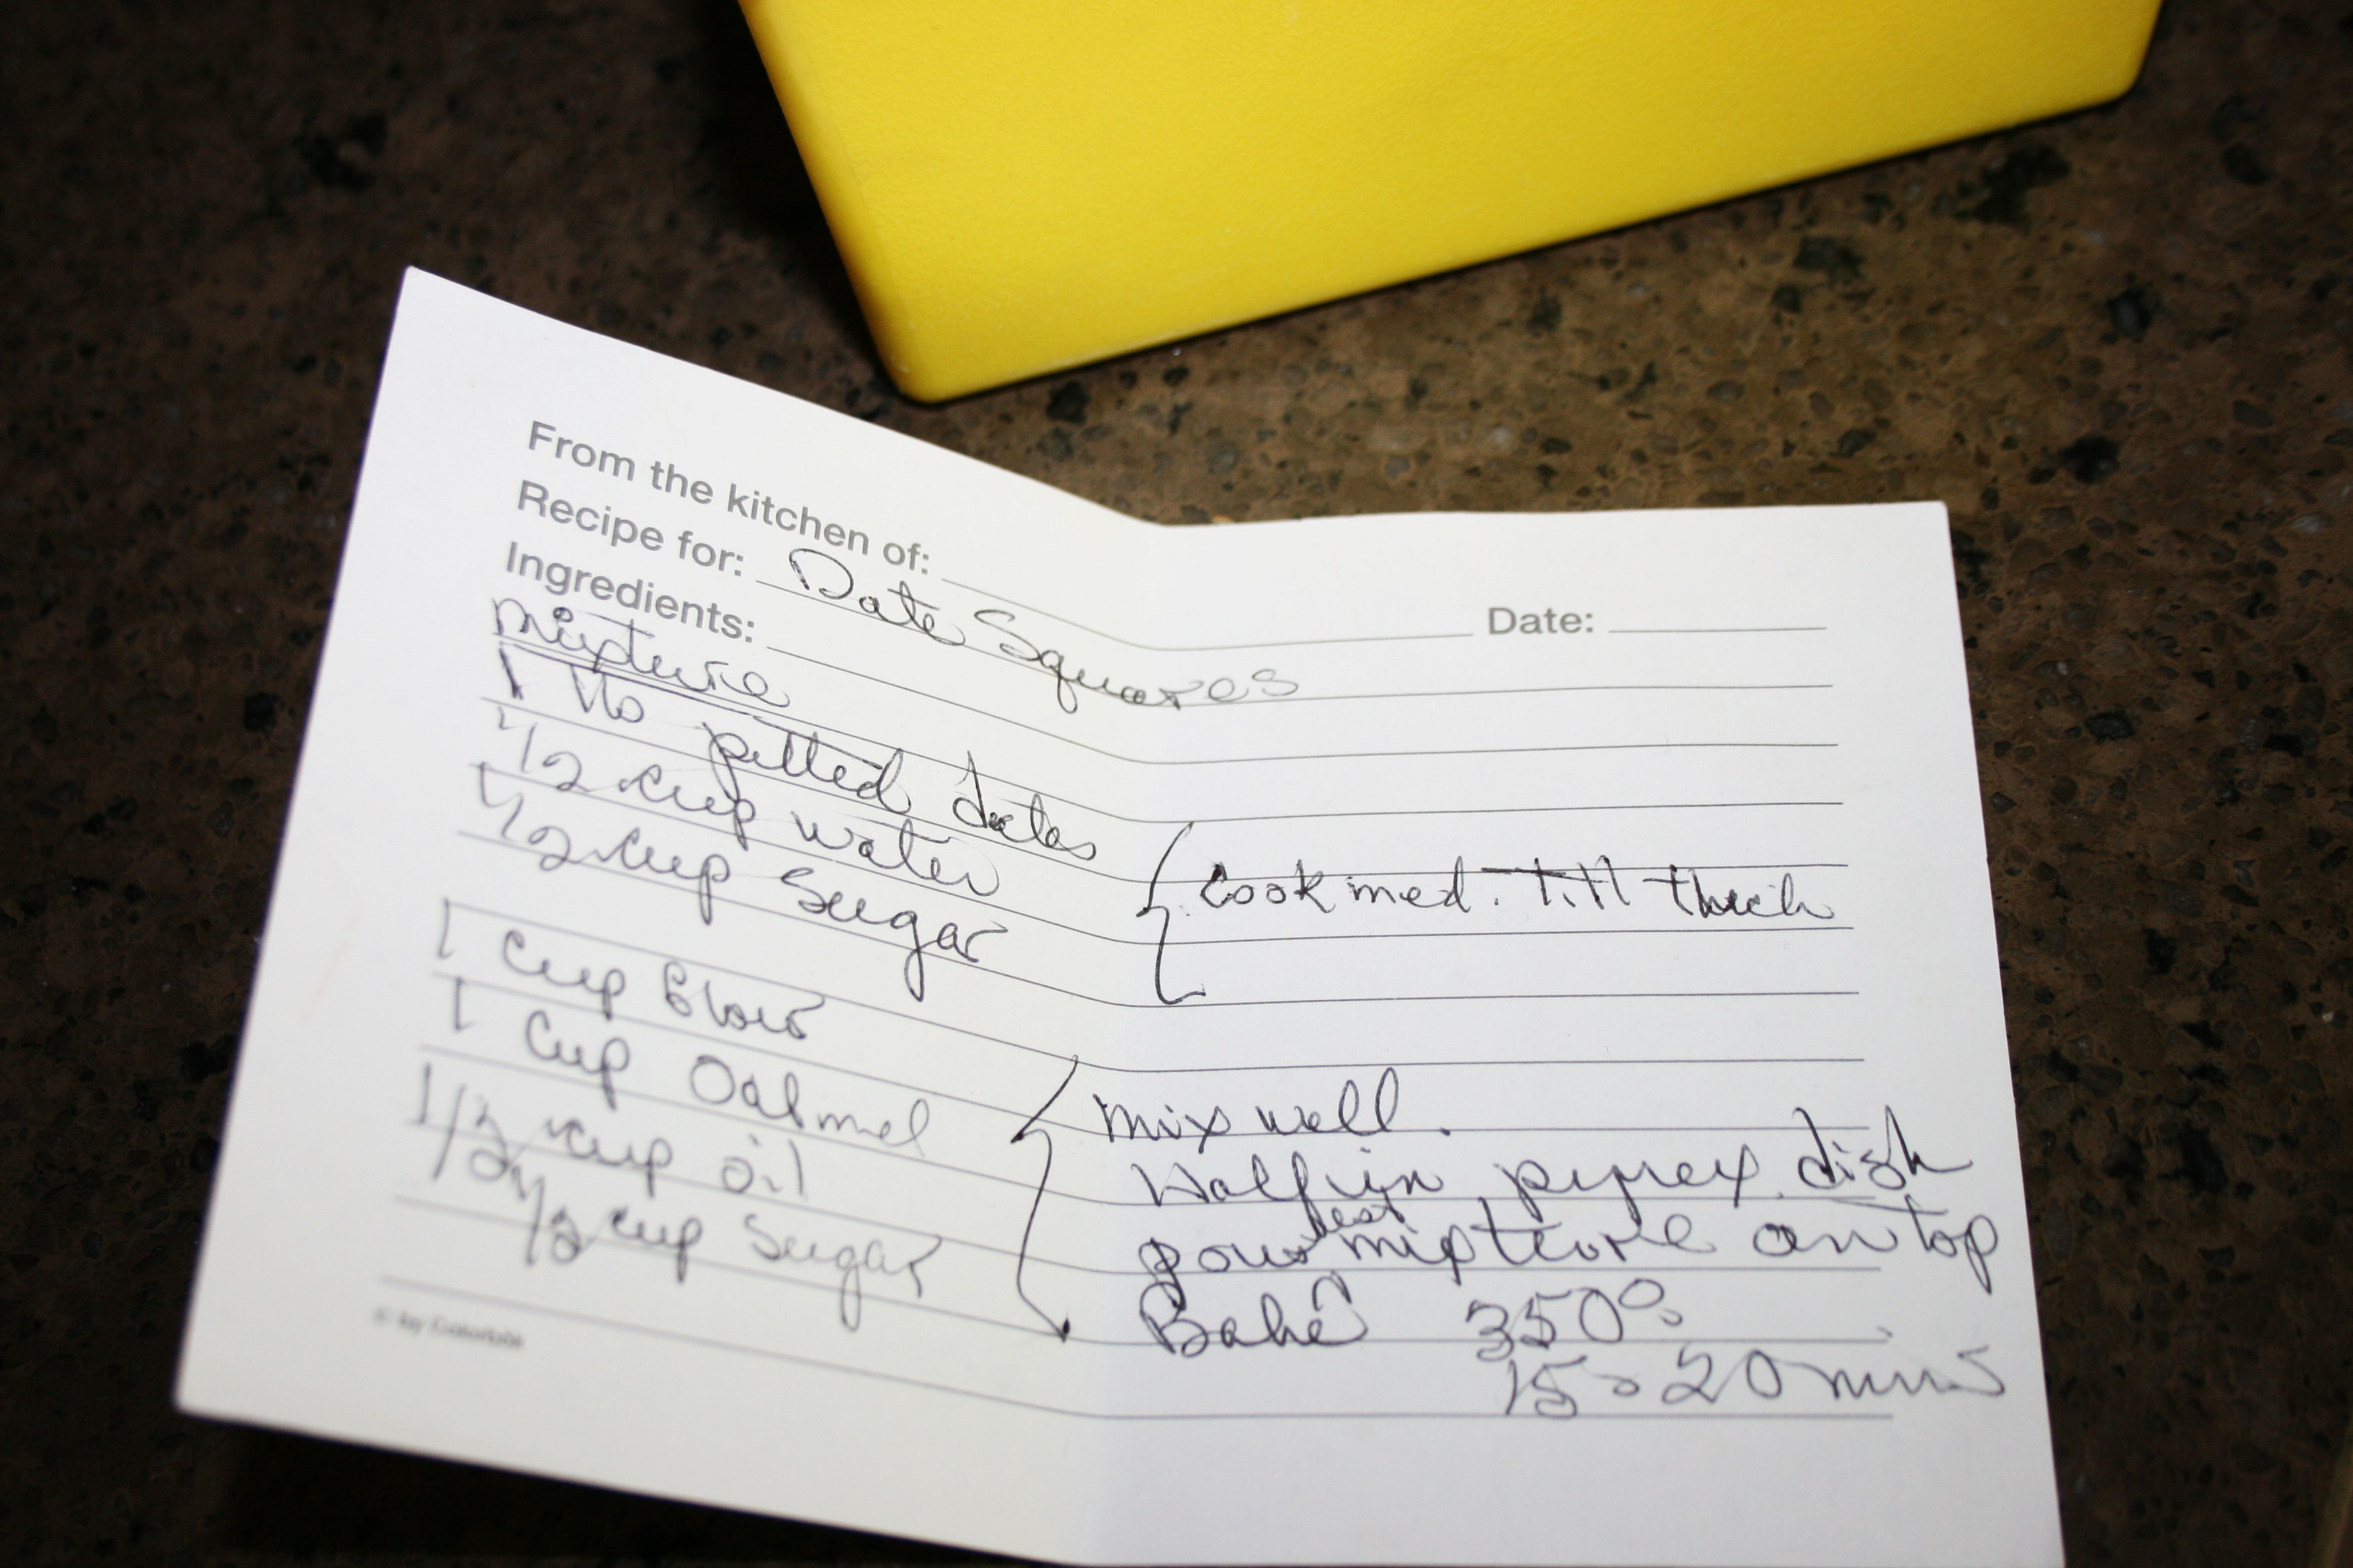 From the kitchen of:
Date:
Recipe for: Date Squares
Ingredients:
mixture
1 lb pitted dates
1/2 cup water
1/2 cup Sugar
Cook med. till thick
1 Cup flour
1 Cup Oatmel
1/2 cup oil
1/2 cup Sugar
mix well.
Half in pyrex dish
pour mixture on top
Bake 350°
15-20 mins